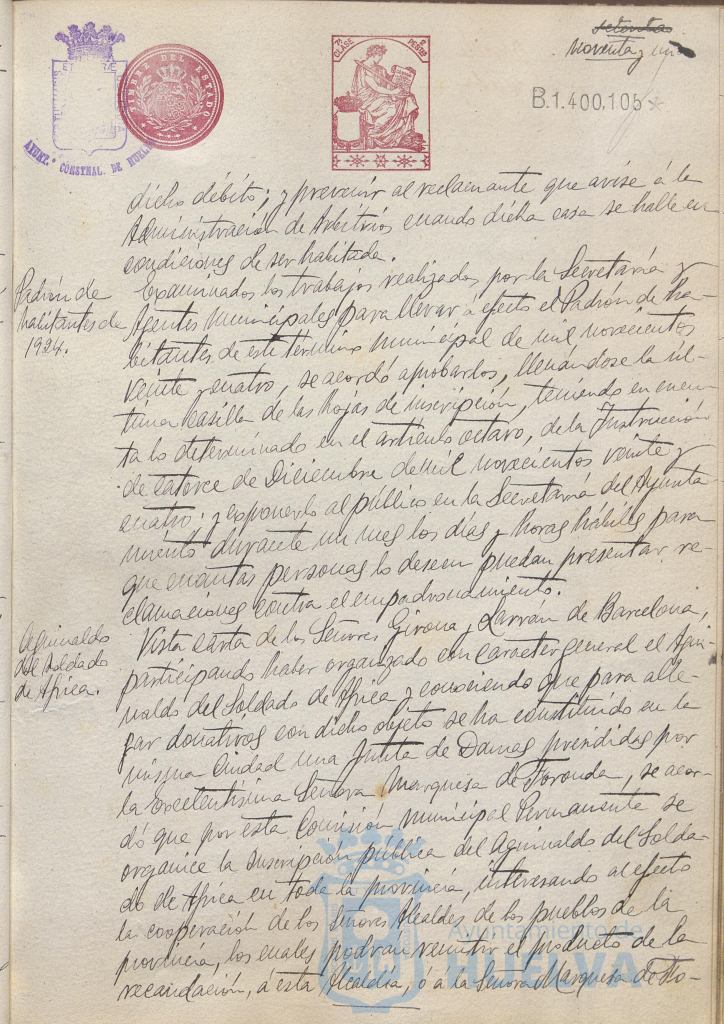 setenta
noventa y un
TIMBRE DEL ESTADO
AYUNT. CONSTNAL. DE HUELVA
7ª CLASE
2 PESETAS
B.1.400,105
dicho débito; y prevenir al reclamante que avise á la
Administración de Arbitrios cuando dicha casa se halle en
condiciones de ser habitada.
Padrón de
habitantes de
1924.
Examinados los trabajos realizados por la Secretaría y
Agentes Municipales para llevar á efecto el Padrón de ha-
bitantes de este término municipal de mil novecientos
veinte y cuatro, se acordó aprobarlos, llenándose la úl-
tima casilla de las hojas de inscripción, teniendo en cuen-
ta lo determinado en el artículo octavo, de la Instrucción
de catorce de Diciembre de mil novecientos veinte y
cuatro; y exponerlo al público en la Secretaría del Ayunta
miento durante un mes los días y horas hábiles para
que cuantas personas lo deseen puedan presentar re-
clamaciones contra el empadronamiento.
Aguinaldo
del Soldado
de Africa.
Vista carta de los Señores Girona y Larrán de Barcelona,
participando haber organizado con caracter general el Agui-
naldo del Soldado de Africa y conociendo que para alle-
gar donativos con dicho objeto se ha constituido en la
misma Ciudad una Junta de Damas presididas por
la Excelentísima Señora Marquesa de Foronda, se acor-
dó que por esta Comisión Municipal Permanente se
organice la suscripción pública del Aguinaldo del Solda-
do de Africa en toda la provincia, interesando al efecto
la cooperación de los Señores Alcaldes de los pueblos de la
provincia, los cuales podrán remitir el producto de la
recaudación, á esta Alcaldía, ó á la Señora Marquesa de Fo-
Ayuntamiento de
HUELVA